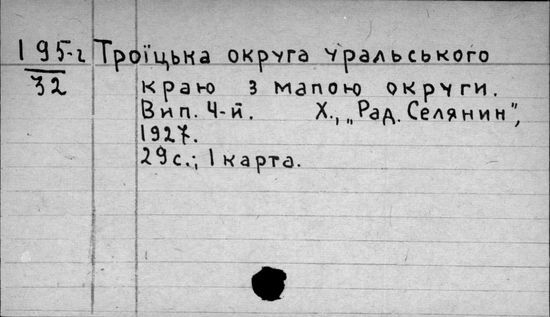 195-г Троїцька округа уральського
32 краю з мапою округи.
Вип. 4-й. Х., „Рад. Селянин",
1927.
29 с.; 1 карта.